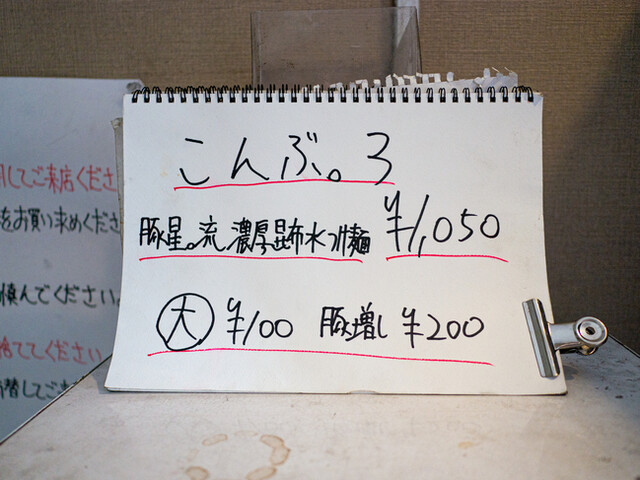 こんぶ。3
豚星。流 濃厚昆布水つけ麺 ¥1,050
大 ¥100 豚増し ¥200
してご来店くださ
をお買い求めくださ
慎んでください。
捨ててください